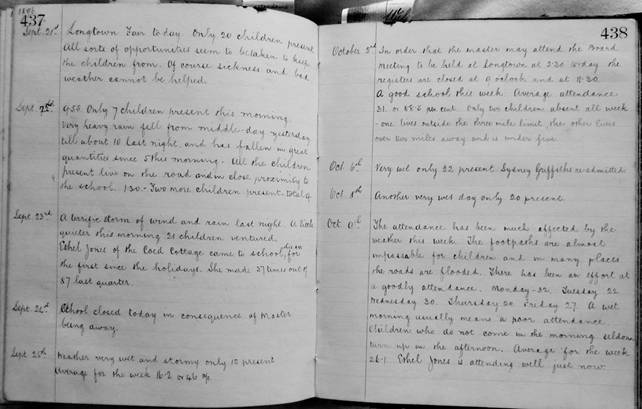 1896
437
Sept. 21st Longtown Fair to day. Only 20 children present
All sorts of opportunities seem to be taken to keep
the children from. Of course sickness and bad
weather cannot be helped.
Sept. 22nd 9.55. Only 7 children present this morning.
Very heavy rain fell from middle-day yesterday
till about 10 last night, and has fallen in great
quantities since 5 this morning. All the children
present live on the road and in close proximity to
the school. 1.30 - Two more children present - total 9
Sept. 23rd A terrific storm of wind and rain last night. A little
quieter this morning 21 children ventured.
Ethel Jones of the Coed Cottage came to school for
the first since the holidays. She made 27 times out of
87 last quarter.
Sept. 24th School closed today in consequence of Master
being away.
Sept. 25th Weather very wet and stormy only 10 present
Average for the week 16.2 or 46 %
438
October 2nd In order that the master may attend the Board
meeting to be held at Longtown at 2.30 to day the
registers are closed at 9 o'clock and at 11.30.
A good school this week. Average attendance
31. or 88.5 per cent. Only two children absent all week
- one lives outside the three mile limit, the other lives
over two miles away and is under five.
Oct 6th Very wet only 22 present. Sydney Griffiths re-admitted.
Oct 8th Another very wet day only 20 present.
Oct 9th The attendance has been much affected by the
weather this week. The footpaths are almost
impassable for children and in many places
the roads are flooded. There has been an effort at
a goodly attendance. Monday - 32, Tuesday 22
Wednesday 30. Thursday 20 Friday 27. A wet
morning usually means a poor attendance.
Children who do not come in the morning seldom
turn up in the afternoon. Average for the week
26.1. Ethel Jones is attending well just now.